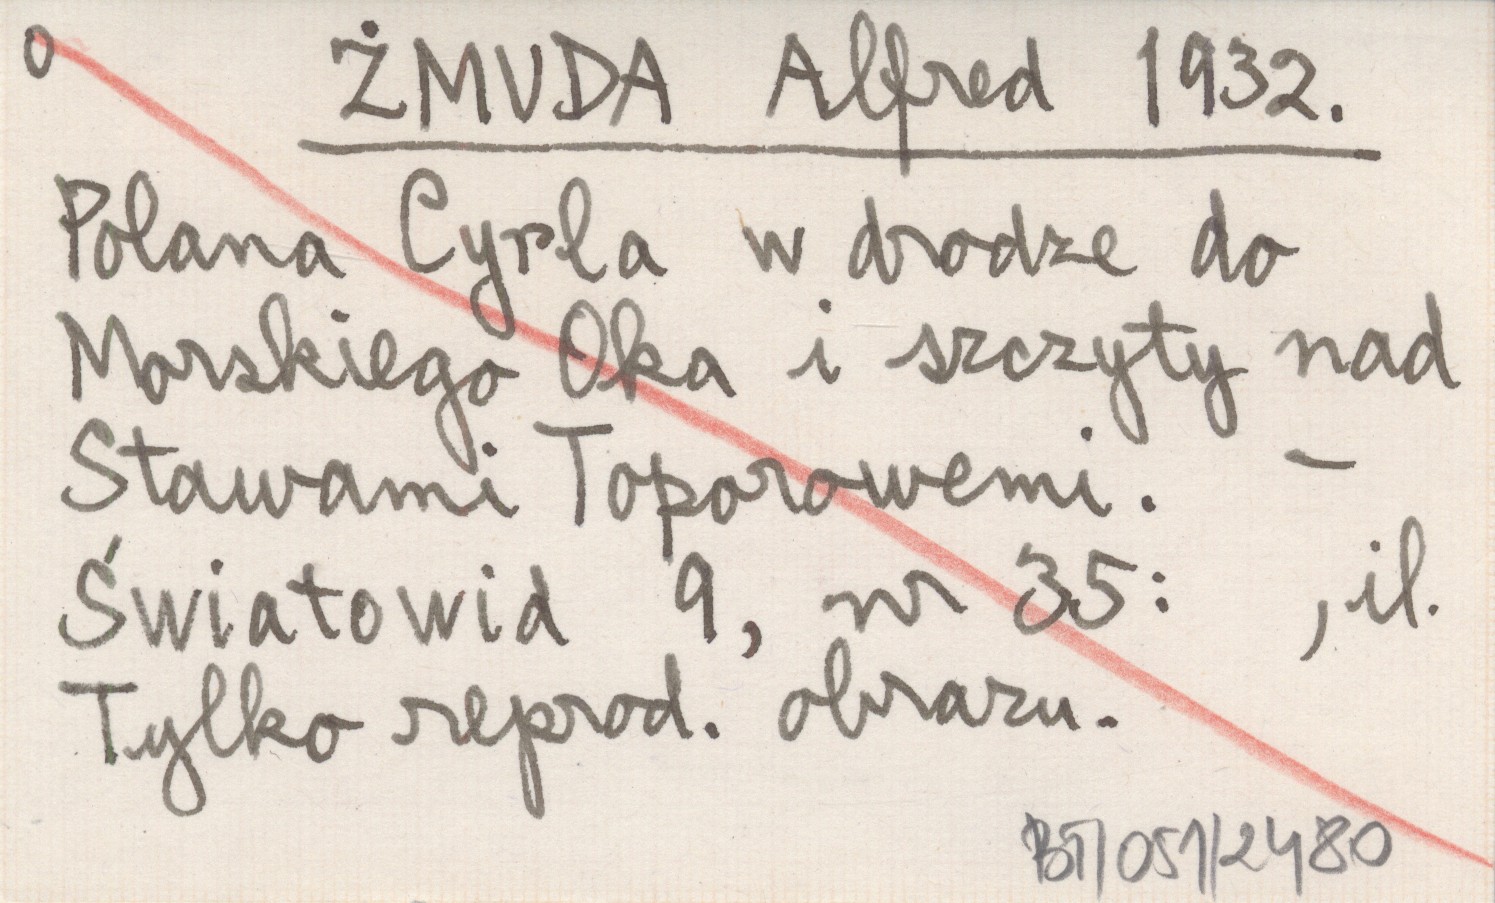 0 ŻMUDA Alfred 1932.
Polana Cyrla w drodze do
Morskiego Oka i szczyty nad
Stawami Toporowemi. –
Światowid 9, nr 35: , il.
Tylko reprod. obrazu.
BT/051/2480